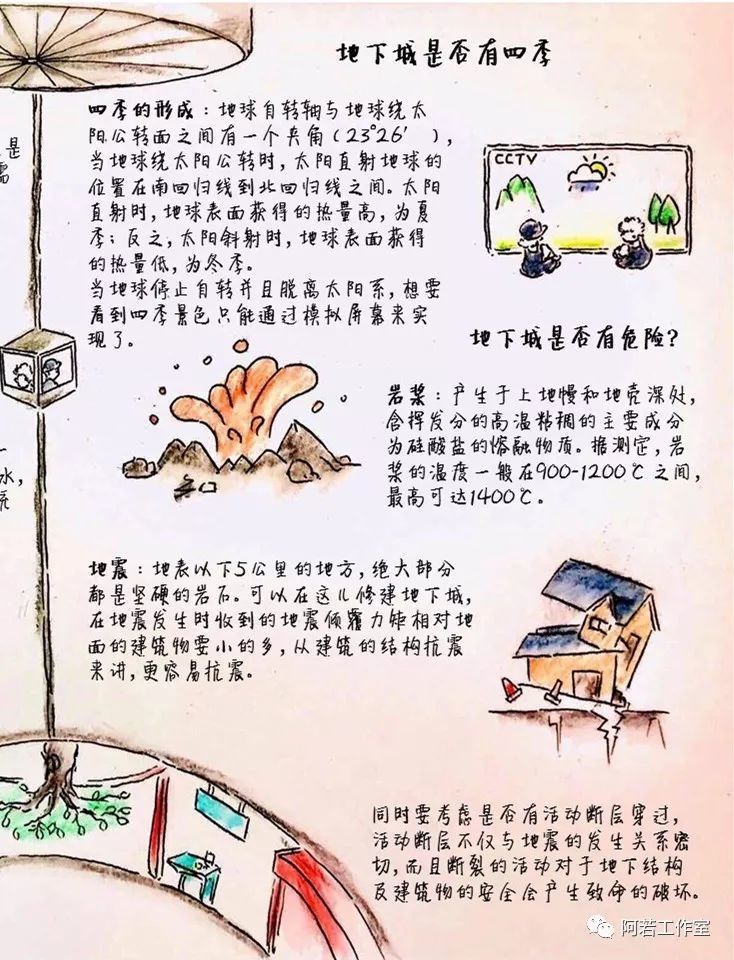 地下城是否有四季
四季的形成：地球自转轴与地球绕太
阳公转面之间有一个夹角（23°26′），
当地球绕太阳公转时，太阳直射地球的
位置在南回归线到北回归线之间。太阳
直射时，地球表面获得的热量高，为夏
季；反之，太阳斜射时，地球表面获得
的热量低，为冬季。
当地球停止自转并且脱离太阳系，想要
看到四季景色只能通过模拟屏幕来实
现了。
是
需
CCTV
地下城是否有危险？
岩浆：产生于上地慢和地壳深处，
含挥发分的高温粘稠的主要成分
为硅酸盐的熔融物质。据测定，岩
浆的温度一般在900-1200℃之间，
最高可达1400℃。
水，
地震：地表以下5公里的地方，绝大部分
都是坚硬的岩石。可以在这儿修建地下城，
在地震发生时收到的地震倾覆力矩相对地
面的建筑物要小的多，从建筑的结构抗震
来讲，更容易抗震。
同时要考虑是否有活动断层穿过，
活动断层不仅与地震的发生关系密
切，而且断裂的活动对于地下结构
及建筑物的安全会产生致命的破坏。
阿若工作室